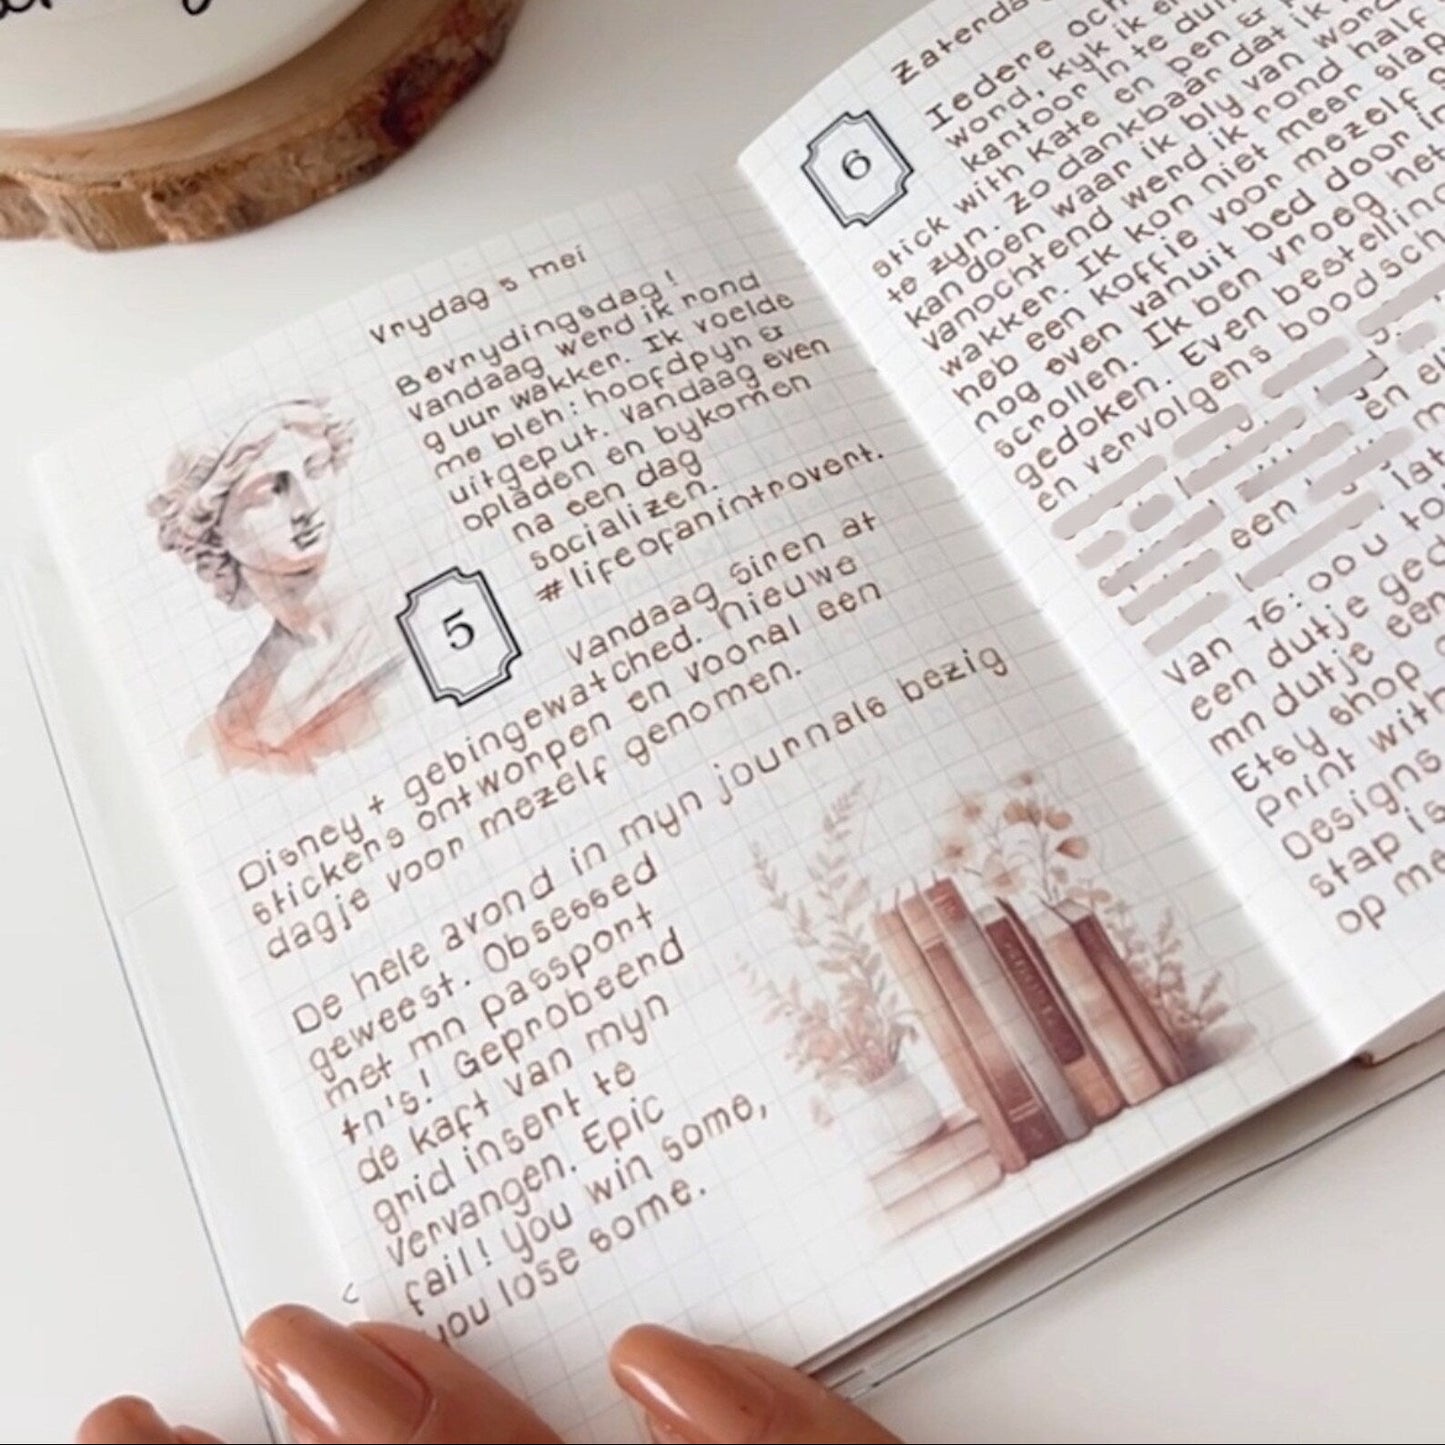 Vrydag 5 mei
Bevrydingsdag!
Vandaag werd ik rond
9 uur wakken. Ik voelde
me bleh: hoofdpyn &
uitgeput. Vandaag even
opladen en bykomen
na een dag
socializen.
#lifeofanintrovert.
5
Vandaag Siren at
Disney + gebingewatched. Nieuwe
stickers ontworpen en vooral een
dagje voor mezelf genomen.
De hele avond in myn journals bezig
geweest. Obsessed
met mn passport
tn's! Geprobeerd
de kaft van myn
grid insert te
vervangen. Epic
fail! You win some,
you lose some.
Zaterda
6
Iedere och
word, kyk ik
kantoor in te dui
stick with Kate en pen &
te zyn. Zo dankbaar dat ik
kan doen waar ik bly van word
Vanochtend werd ik rond half
wakker. Ik kon niet meer slap
heb een koffie voor mezelf
nog even vanuit bed door in
scrollen. Ik ben vroeg het
gedoken. Even bestelling
en vervolgens boodsch
en
een
Van 16:00u to
een dutje ged
mn dutje een
Etsy shop
Print with
Designs
stap is
op me